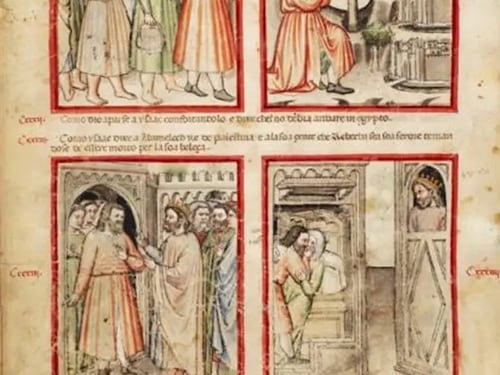 Como dio aparse a ysaac confortantolo e dixe che no debia andare in egypto.
Como ysaac dixe a Abimelech re de palestina e a la soa çente che Rebecha sia soa serore teman
dose de essere morto per la soa beleça.